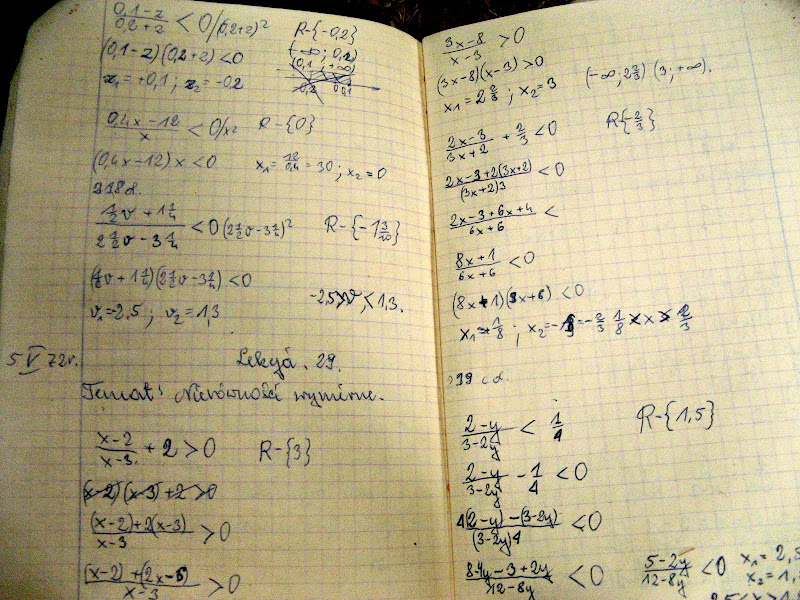 (0,1-z)/(0,2+z) < 0 /(0,2+z)² R-{-0,2}
(0,1-z)(0,2+z) < 0 (-∞; 0,2)
(0,1; +∞)
x₁ = +0,1; x₂ = -0,2
-0,2 0,1
(0,4x-12)/x < 0 /x² R-{0}
(0,4x-12)x < 0 x₁ = 12/0,4 = 30; x₂ = 0
318d.
< 0 R-
< 0
v₁ = -2,5; v₂ = 1,3 -2,5 < 1,3.
5 V 72r. Lekcja. 29.
Temat: Nierówności wymierne.
(x-2)/(x-3) + 2 > 0 R-{3}
(x-2)(x-3) + 2 > 0
((x-2)+2(x-3))/(x-3) > 0
((x-2)+(2x-6))/(x-3) > 0
(3x-8)/(x-3) > 0
(3x-8)(x-3) > 0
x₁ = 2 2/3; x₂ = 3 (-∞; 2 2/3) (3; +∞).
(2x-3)/(3x+2) + 2/3 < 0 R{-2/3}
(2x-3+2(3x+2))/((3x+2)3) < 0
(2x-3+6x+4)/(6x+6) <
(8x+1)/(6x+6) < 0
< 0
319 cd.
(2-y)/(3-2y) < 1/4 R-{1,5}
(2-y)/(3-2y) - 1/4 < 0
(4(2-y)-(3-2y))/((3-2y)4) < 0
(8-4y-3+2y)/(12-8y) < 0 (5-2y)/(12-8y) < 0 x₁ = 2,5
x₂ = 1,